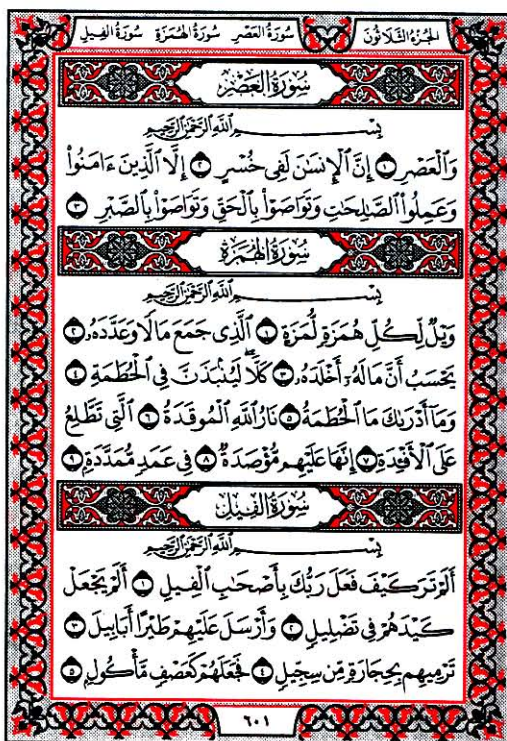 الجزء الثلاثون سورة العصر سورة الهمزة سورة الفيل
سُورَةُ العَصْرِ
بِسْمِ ٱللَّهِ ٱلرَّحْمَٰنِ ٱلرَّحِيمِ
وَٱلْعَصْرِ ١ إِنَّ ٱلْإِنسَٰنَ لَفِى خُسْرٍ ٢ إِلَّا ٱلَّذِينَ ءَامَنُوا۟
وَعَمِلُوا۟ ٱلصَّٰلِحَٰتِ وَتَوَاصَوْا۟ بِٱلْحَقِّ وَتَوَاصَوْا۟ بِٱلصَّبْرِ ٣
سُورَةُ الهُمَزَةِ
بِسْمِ ٱللَّهِ ٱلرَّحْمَٰنِ ٱلرَّحِيمِ
وَيْلٌ لِّكُلِّ هُمَزَةٍ لُّمَزَةٍ ١ ٱلَّذِى جَمَعَ مَالًا وَعَدَّدَهُۥ ٢
يَحْسَبُ أَنَّ مَالَهُۥٓ أَخْلَدَهُۥ ٣ كَلَّا ۖ لَيُنۢبَذَنَّ فِى ٱلْحُطَمَةِ ٤
وَمَآ أَدْرَىٰكَ مَا ٱلْحُطَمَةُ ٥ نَارُ ٱللَّهِ ٱلْمُوقَدَةُ ٦ ٱلَّتِى تَطَّلِعُ
عَلَى ٱلْأَفْـِٔدَةِ ٧ إِنَّهَا عَلَيْهِم مُّؤْصَدَةٌ ٨ فِى عَمَدٍ مُّمَدَّدَةٍۭ ٩
سُورَةُ الفِيلِ
بِسْمِ ٱللَّهِ ٱلرَّحْمَٰنِ ٱلرَّحِيمِ
أَلَمْ تَرَ كَيْفَ فَعَلَ رَبُّكَ بِأَصْحَٰبِ ٱلْفِيلِ ١ أَلَمْ يَجْعَلْ
كَيْدَهُمْ فِى تَضْلِيلٍ ٢ وَأَرْسَلَ عَلَيْهِمْ طَيْرًا أَبَابِيلَ ٣
تَرْمِيهِم بِحِجَارَةٍ مِّن سِجِّيلٍ ٤ فَجَعَلَهُمْ كَعَصْفٍ مَّأْكُولٍۭ ٥
٦٠١